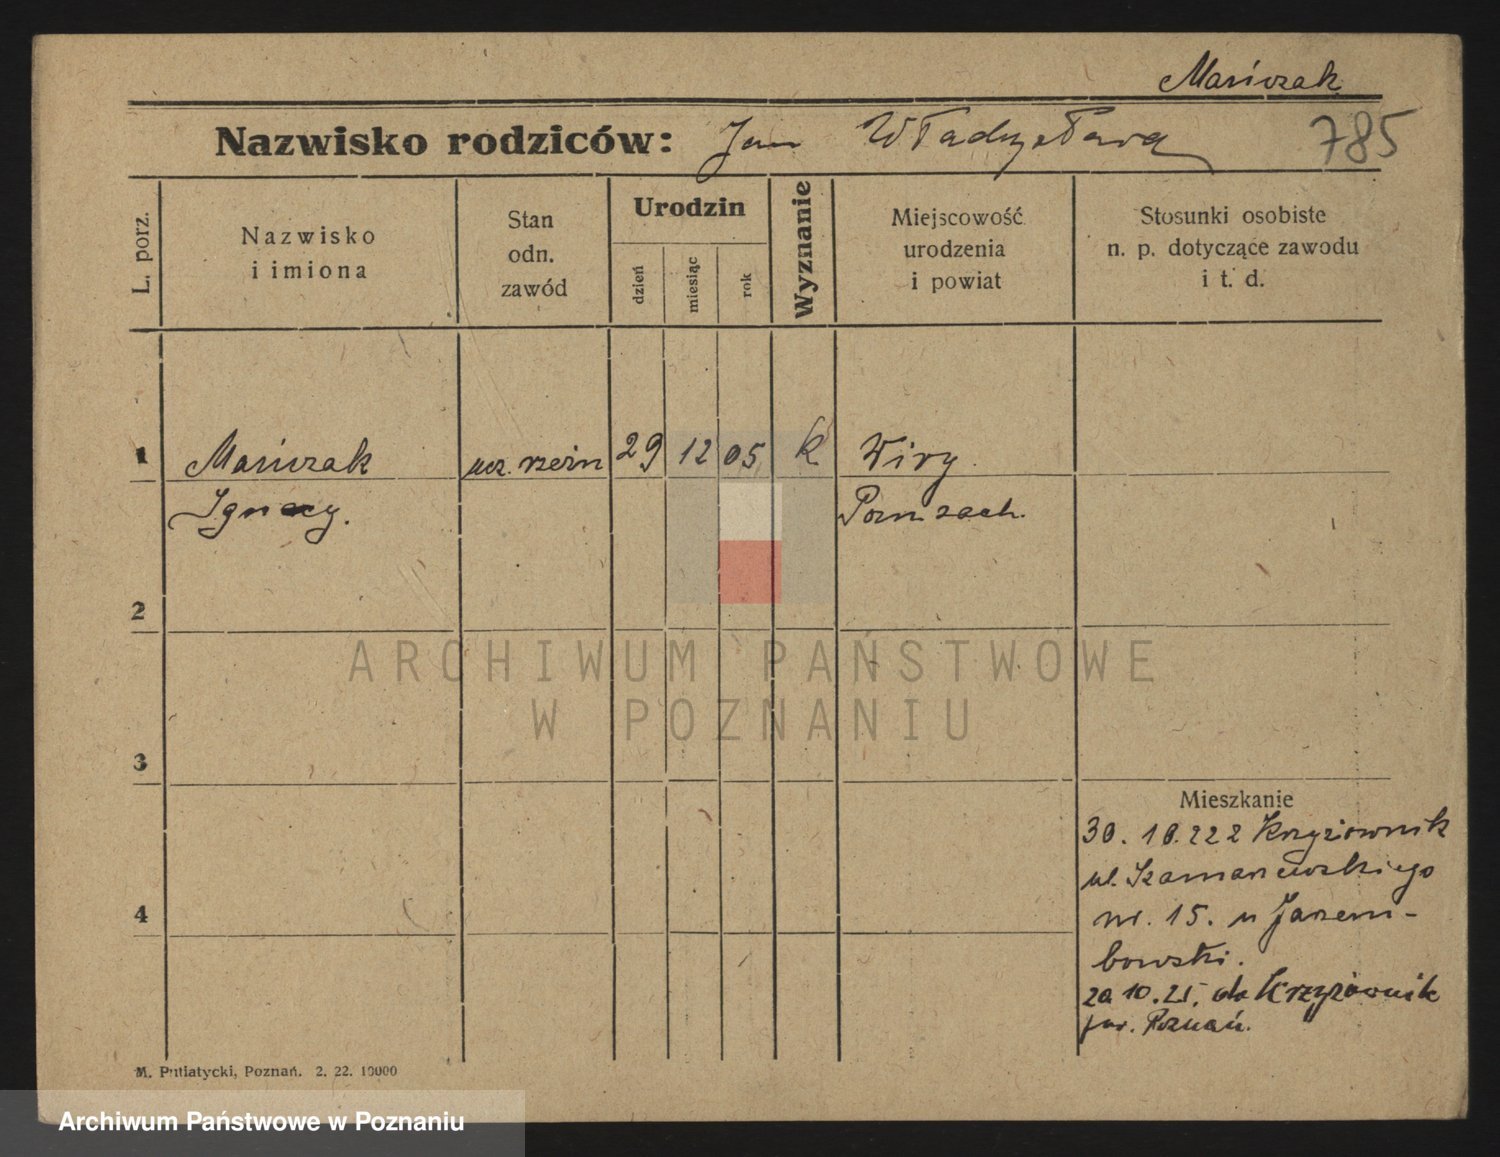 Marciszak
785
Nazwisko rodziców: Jan Władysława
L. porz.
Nazwisko
i imiona
Stan
odn.
zawód
Urodzin
dzień
miesiąc
rok
Wyznanie
Miejscowość
urodzenia
i powiat
Stosunki osobiste
n. p. dotyczące zawodu
i t. d.
1
ucz. rzeźn
29 12 05 k Wiry
Ignacy.
Pozn zach.
2
ARCHIWUM PAŃSTWOWE
W POZNANIU
3
Mieszkanie
30. 10. 222 Krzyżownik
ul.
nr. 15. u Jarzem-
bowski.
20 10. 25. do Krzyżownik
pow. Poznań.
4
M. Putiatycki, Poznań. 2. 22. 10000
Archiwum Państwowe w Poznaniu